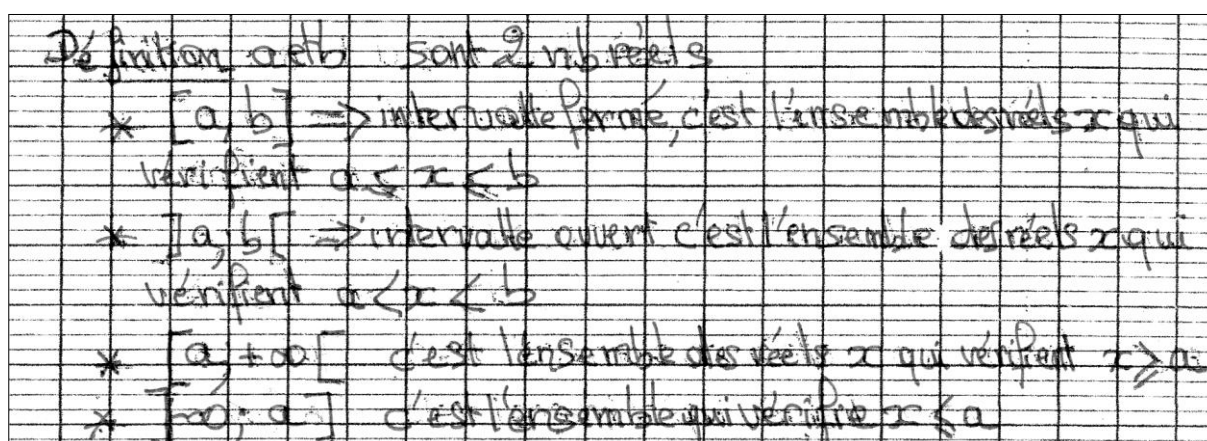 Définition a et b sont 2 nb réels
* [a, b] => intervalle fermé, c'est l'ensemble des réels x qui
vérifient a ≤ x ≤ b
* ]a; b[ => intervalle ouvert c'est l'ensemble des réels x qui
vérifient a < x < b
* [a; +∞[ c'est l'ensemble des réels x qui vérifient x ⩾ a
* [-∞; a] c'est l'ensemble qui vérifie x ⩽ a